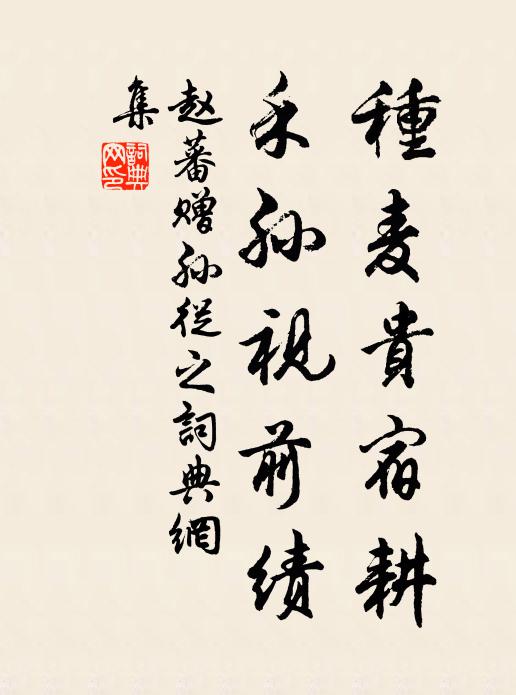 種麦貴宿耕
禾孙視前績
赵蕃赠孙從之詞典網
集
詞典
网印